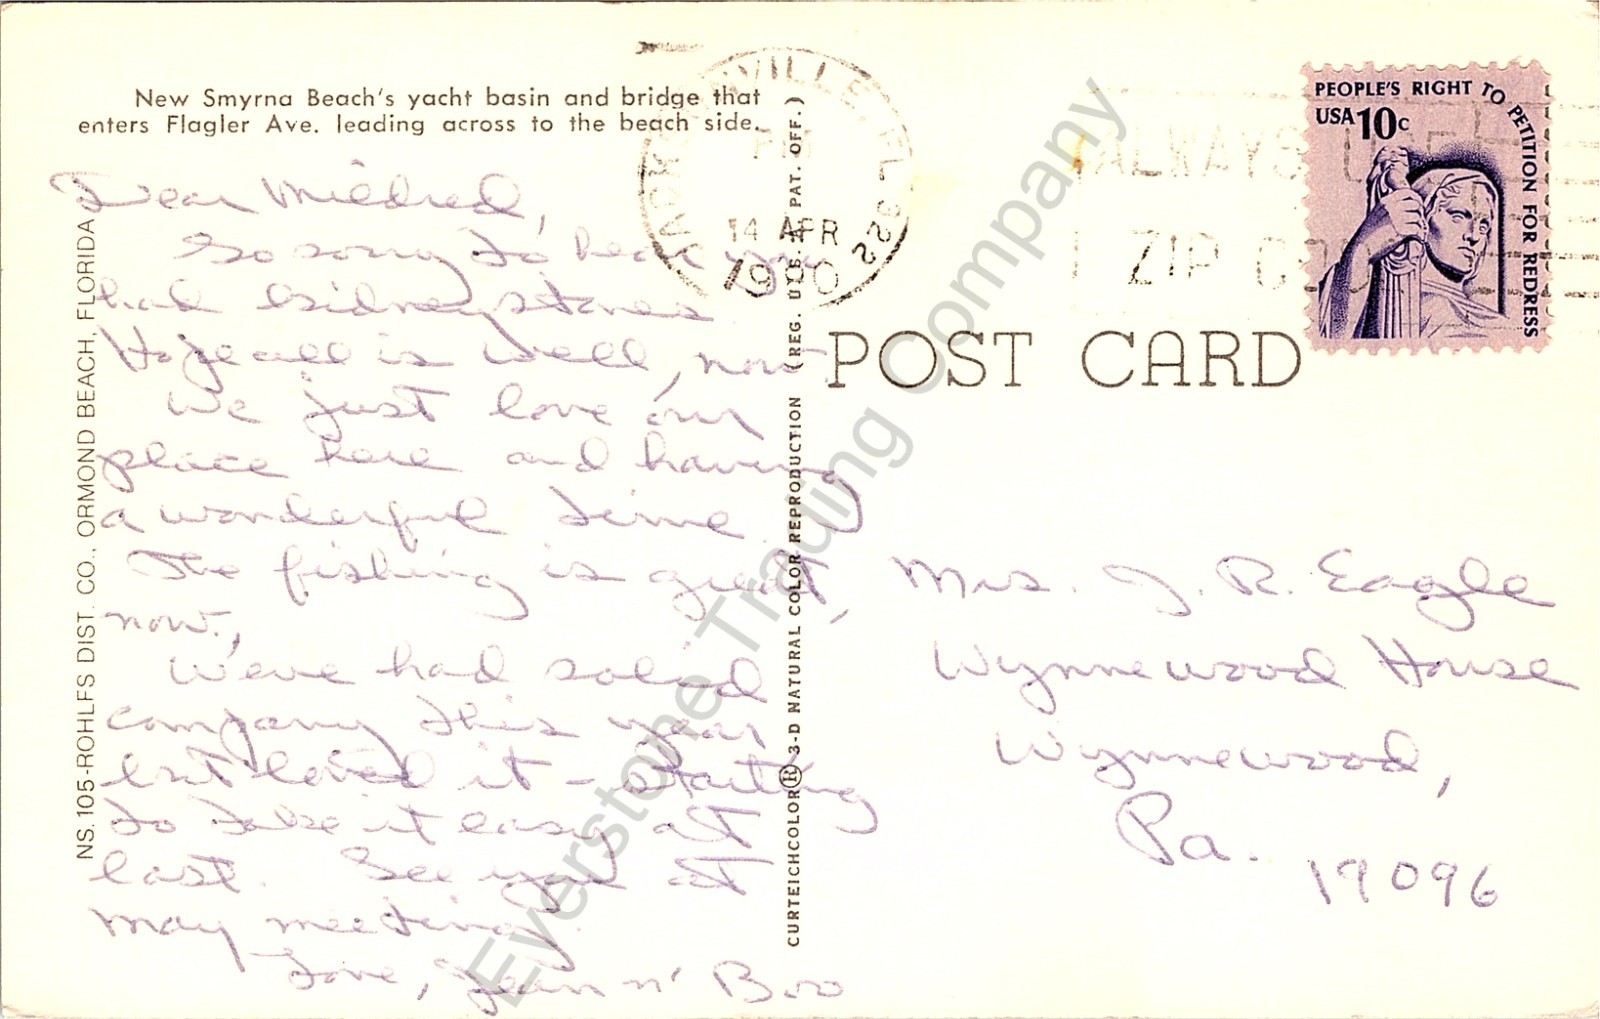 New Smyrna Beach's yacht basin and bridge that
enters Flagler Ave. leading across to the beach side.
Dear Mildred,
So sorry to hear you
had kidney stones
Hope all is well, now
We just love our
place here and having
a wonderful time.
The fishing is great,
now.,
We've had solid
company this year
but loved it - starting
to take it easy at
last. See you at
May meeting.
Love, Jean n' Boo
NS.105-ROHLFS DIST. CO., ORMOND BEACH, FLORIDA
CURTEICHCOLOR® 3-D NATURAL COLOR REPRODUCTION (REG. U.S.A. PAT. OFF.)
VILLE, FL 322
PM
14 APR
ALWAYS USE
ZIP CODE
PEOPLE'S RIGHT TO PETITION FOR REDRESS
USA 10c
POST CARD
Mrs. J. R. Eagle
Wynnewood House
Wynnewood,
Pa. 19096
Everstone Trading Company